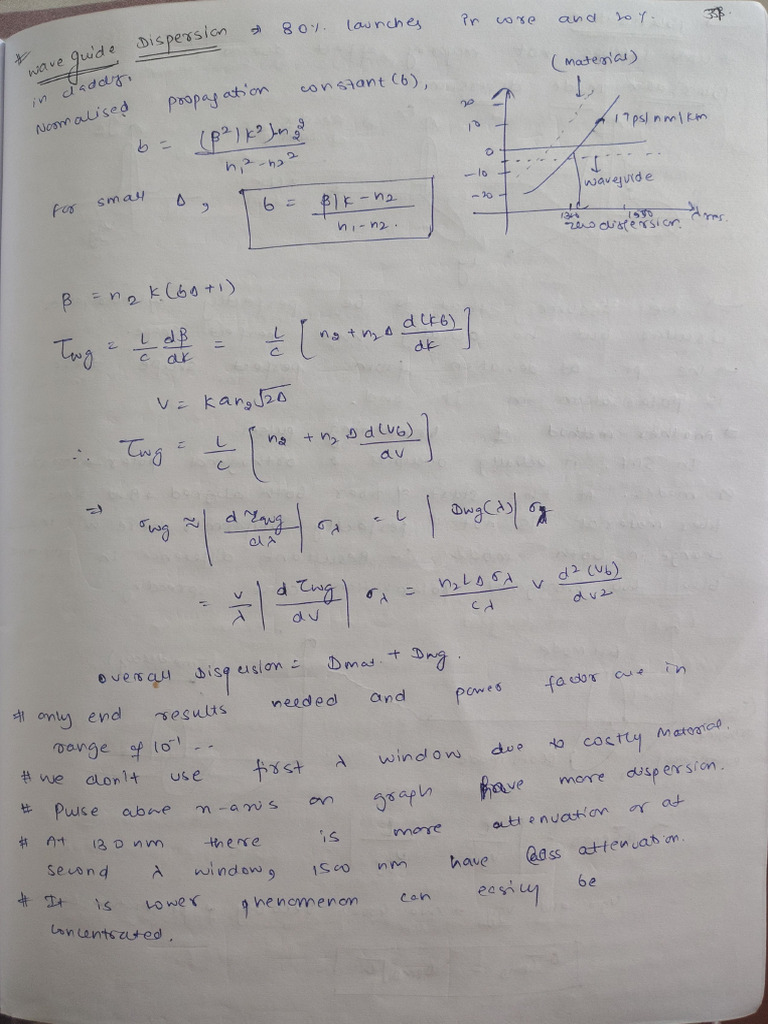 * Wave guide Dispersion → 80% launches in core and 20%. 38.
in claddg,
Normalised propagation constant (b),
b = (β²/k²)-n₂² / n₁²-n₂²
For small Δ, b = β/k - n₂ / n₁-n₂.
(material)
20
10
0
-10
-20
17ps/nm/km
waveguide
1300
1550
λ nm.
zero dispersion.
β = n₂ k (bΔ+1)
τwg = L/c dβ/dk = L/c [ n₂ + n₂Δ d(kb)/dk ]
V = kan₂√2Δ
∴ τwg = L/c [ n₂ + n₂Δ d(vb)/dv ]
⇒ σwg ≈ | dτwg/dλ | σλ = L | Dwg(λ) | σλ
= v/λ | dτwg/dv | σλ = n₂LΔσλ/cλ v d²(vb)/dv²
overall Dispersion = Dmat. + Dwg.
# only end results needed and power factor are in
range of 10⁻¹ ..
# we don't use first λ window due to costly Material.
# Pulse above n-axis on graph have more dispersion.
# At 130nm there is more attenuation or at
second λ window, 1500 nm have less attenuation.
* It is lower phenomenon can easicly be
concentrated.